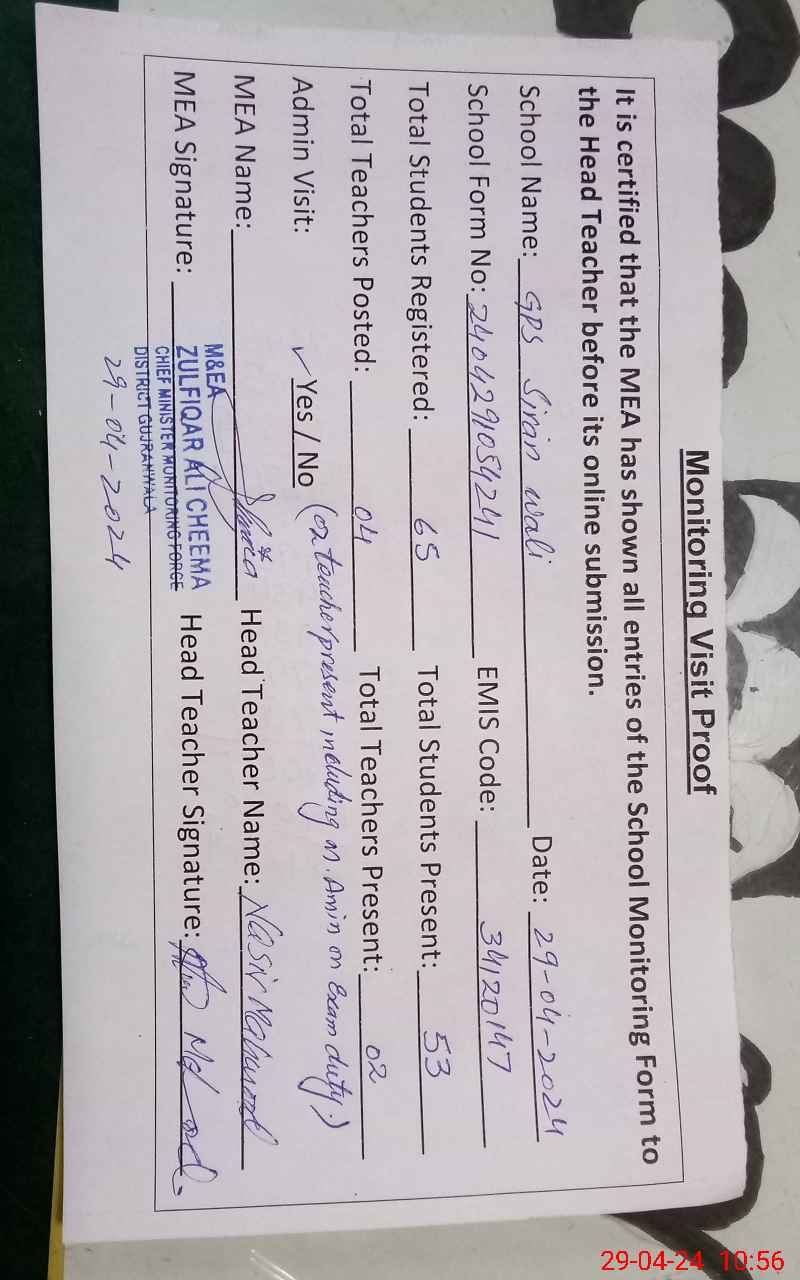 Monitoring Visit Proof
It is certified that the MEA has shown all entries of the School Monitoring Form to
the Head Teacher before its online submission.
School Name: GPS Siran Wali Date: 29-04-2024
School Form No: 2404291054241 EMIS Code: 34120147
Total Students Registered: 65 Total Students Present: 53
Total Teachers Posted: 04 Total Teachers Present: 02
Admin Visit: ✓ Yes / No (02 teacher present including M. Amin on Exam duty.)
MEA Name: Head Teacher Name: Nasir Mahmood
MEA Signature: Head Teacher Signature:
M&EA
ZULFIQAR ALI CHEEMA
CHIEF MINISTER MONITORING FORCE
DISTRICT GUJRANWALA
29-04-2024
29-04-24 10:56